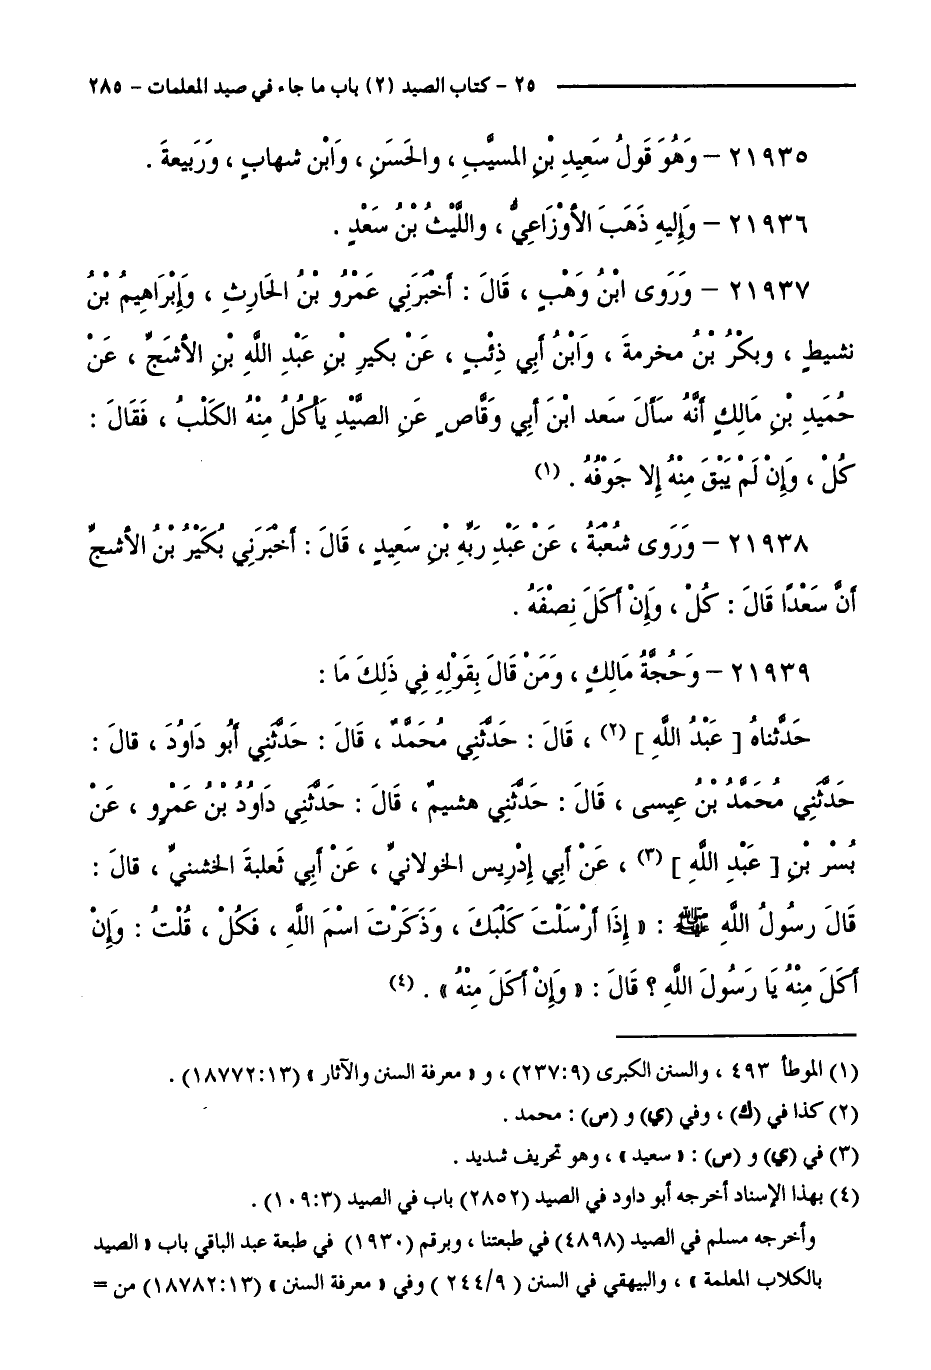 ٢٥ - كتاب الصيد (٢) باب ما جاء في صيد المعلمات - ٢٨٥
٢١٩٣٥ – وَهُوَ قَولُ سَعِيدِ بْنِ المسيَّبِ ، والحَسَنِ ، وَابْن شهابٍ ، وَرَبيعةَ .
٢١٩٣٦ – وَإِليهِ ذَهَبَ الأوْزَاعِيُّ ، واللَّيْثُ بْنُ سَعْدٍ .
٢١٩٣٧ – وَرَوى ابْنُ وَهْبٍ ، قَالَ : أَخْبَرَنِي عَمْرُو بْنُ الحَارِثِ ، وَإِبْرَاهِيمُ بْنُ
نشيطٍ ، وبكْرُ بْنُ مخرمةَ ، وَابْنُ أَبِي ذِئْبٍ ، عَنْ بكيرِ بْنِ عَبْدِ اللَّهِ بْنِ الأشَجِّ ، عَنْ
حُمَيدِ بْنِ مَالِكٍ أَنَّهُ سَأَلَ سَعد ابْنَ أَبِي وَقَّاصٍ عَنِ الصَّيْدِ يَأْكُلُ مِنْهُ الكَلْبُ ، فَقَالَ :
كُلْ ، وَإِنْ لَمْ يَبْقَ مِنْهُ إِلا جَوْفُهُ . (١)
٢١٩٣٨ – وَرَوى شعْبَةُ ، عَنْ عَبْدِ رَبِّهِ بْنِ سَعِيدٍ ، قَالَ : أَخْبَرَنِي بُكَيْرُ بْنُ الأشجِّ
أَنَّ سَعْدًا قَالَ : كُلْ ، وَإِنْ أَكَلَ نِصْفَهُ .
٢١٩٣٩ – وَحُجَّةُ مَالِكٍ ، وَمَنْ قَالَ بِقَوْلِهِ فِي ذَلِكَ مَا :
حَدَّثناهُ [ عَبْدُ اللَّهِ ] (٢) ، قَالَ : حَدَّثَنِي مُحَمَّدٌ ، قَالَ : حَدَّثَنِي أَبُو دَاوُدَ ، قالَ :
حَدَّثَنِي مُحَمَّدُ بْنُ عِيسى ، قَالَ : حَدَّثَنِي هشيمٌ ، قَالَ : حَدَّثَنِي دَاوُدُ بْنُ عَمْرٍو ، عَنْ
بُسْرْ بْنِ [ عَبْدِ اللَّهِ ] (٣) ، عَنْ أَبِي إِدْرِيس الخولانيِّ ، عَنْ أَبِي ثَعلبةَ الخشنيِّ ، قالَ :
قَالَ رسُولُ اللَّهِ ﷺ : « إِذَا أَرْسَلْتَ كَلْبَكَ ، وَذَكَرْتَ اسْمَ اللَّهِ ، فَكُلْ ، قُلْتُ : وَإِنْ
أَكَلَ مِنْهُ يَا رَسُولَ اللَّهِ ؟ قَالَ : « وَإِنْ أَكَلَ مِنْهُ » . (٤)
(١) الموطأ ٤٩٣ ، والسنن الكبرى (٢٣٧:٩) ، و « معرفة السنن والآثار » (١٨٧٧٢:١٣) .
(٢) كذا في (ك) ، وفي (ي) و (س) : محمد .
(٣) في (ي) و (س) : « سعيد » ، وهو تحريف شديد .
(٤) بهذا الإسناد أخرجه أبو داود في الصيد (٢٨٥٢) باب في الصيد (١٠٩:٣) .
وأخرجه مسلم في الصيد (٤٨٩٨) في طبعتنا ، وبرقم (١٩٣٠) في طبعة عبد الباقي باب « الصيد
بالكلاب المعلمة » ، والبيهقي في السنن ( ٢٤٤/٩ ) وفي « معرفة السنن » (١٨٧٨٢:١٣) من =